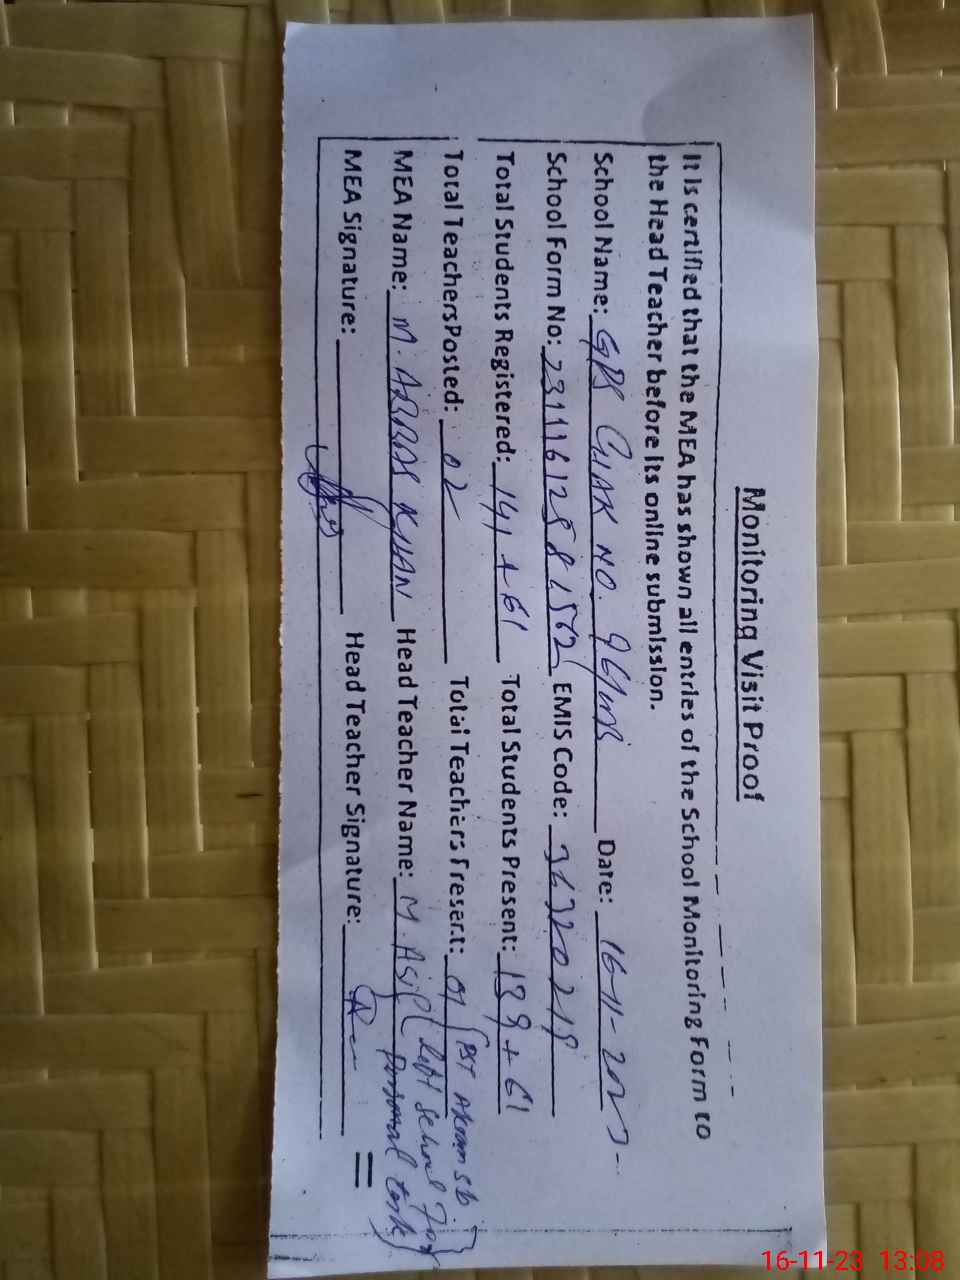 Monitoring Visit Proof
It is certified that the MEA has shown all entries of the School Monitoring Form to
the Head Teacher before its online submission.
School Name: GPS CHAK NO. Date: 16-11-2023
School Form No: EMIS Code:
Total Students Registered: 141 + 61 Total Students Present: 139 + 61
Total Teachers Posted: 02 Total Teachers Present: 01 (PST Akram sb
left school for
personal task)
MEA Name: M. ABBAS KHAN Head Teacher Name: M. Asif
MEA Signature: Head Teacher Signature:
16-11-23 13:08